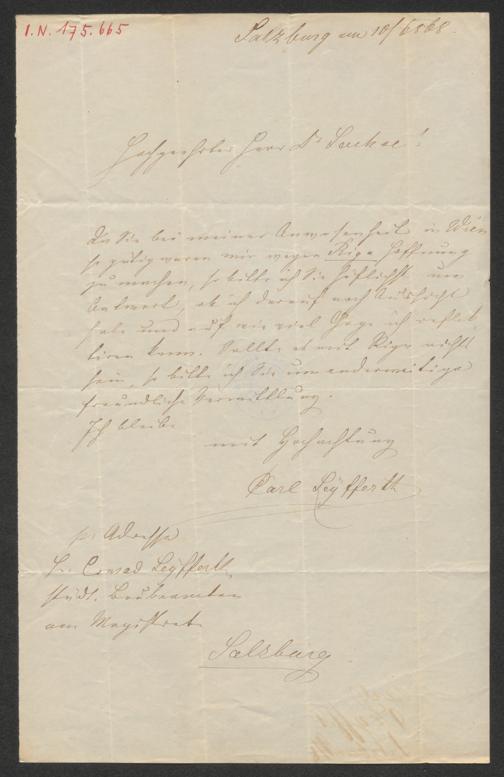 I.N. 175.665
Salzburg am 10/6 868.
Hochgeehrter Herr Dr
Da Sie bei meiner Anwesenheit in Wien
so gütig waren mir wegen Riga Hoffnung
zu machen, so bitte ich Sie höflichst um
Antwort, ob ich darauf noch Aussicht
habe und auf wie viel Gage ich reflek
tiren kann. Sollte es mit Riga nichts
sein, so bitte ich Sie um anderweitige
freundliche Vermittlung.
Ich bleibe
mit Hochachtung
Carl Seÿfferth
pr Adresse
Hr. Conrad Seÿfferth
städt. Baubeamten
am Magistrat
Salzburg.